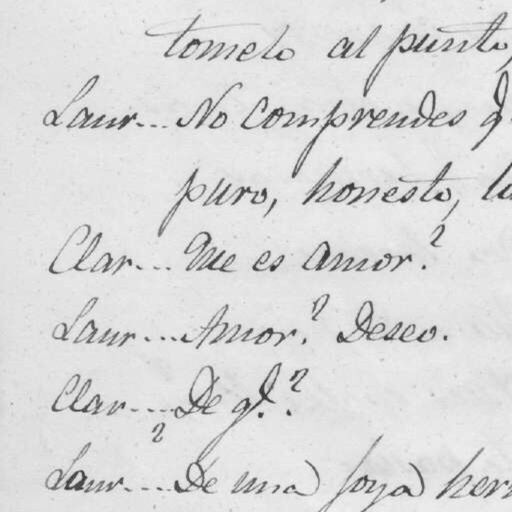 tomelo al punto,
Laur... No comprendes q
puro, honesto,
Clar... Que es amor?
Laur... Amor? Deseo.
Clar... De q.?
?
Laur... De una joya her